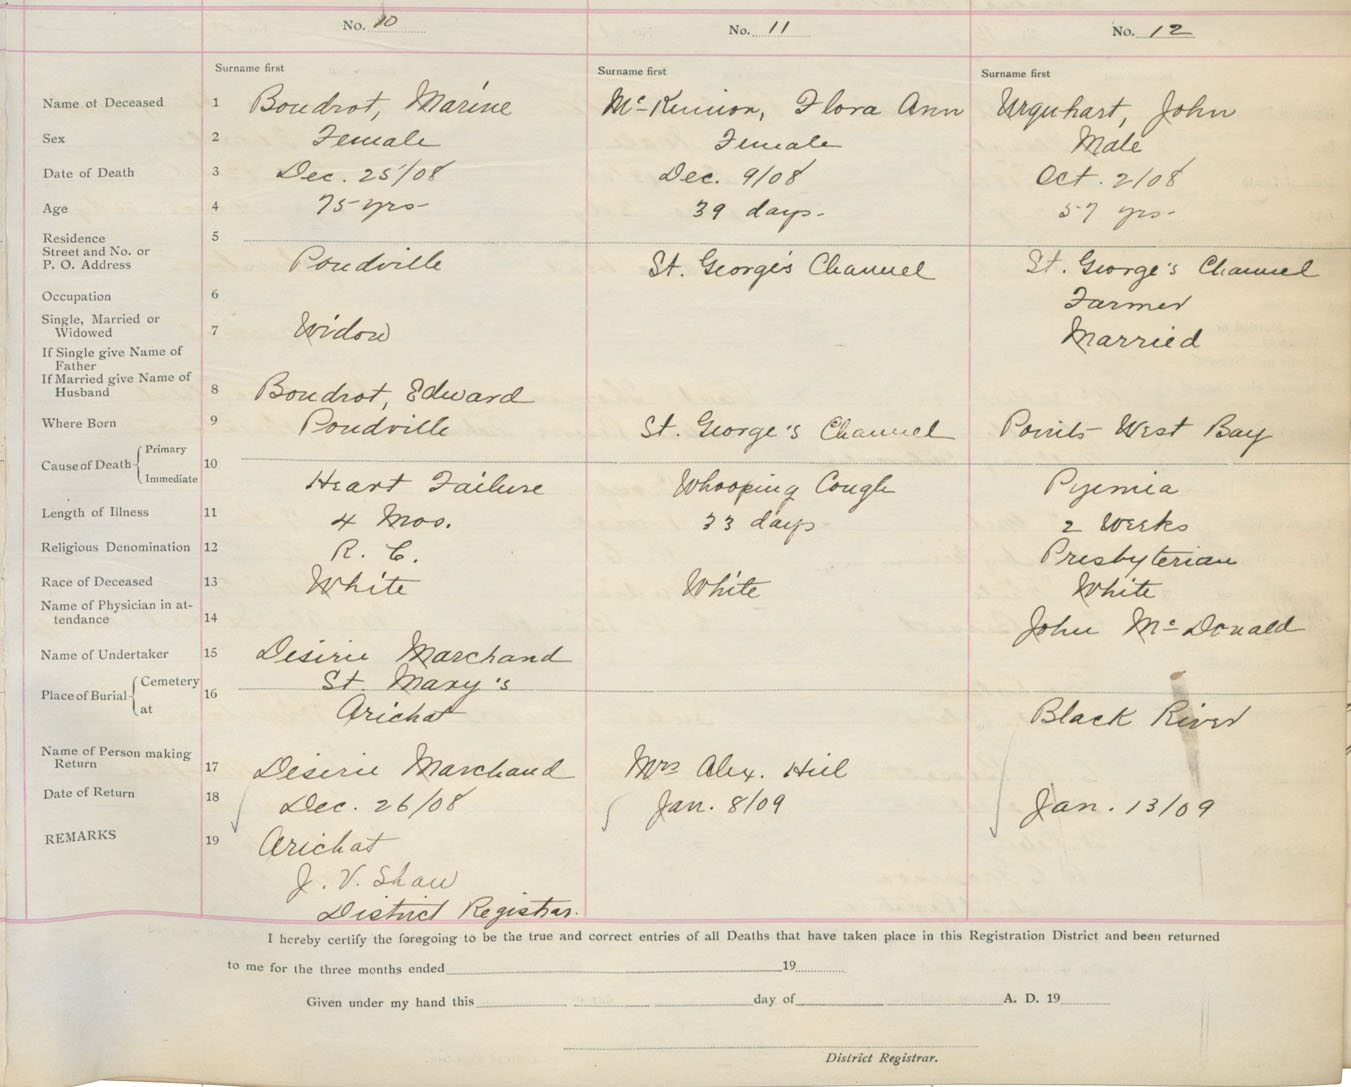 No. 10 No. 11 No. 12
Surname first Surname first Surname first
Name of Deceased 1 Boudrot, Marine McKinnon, Flora Ann Urquhart, John
Sex 2 Female Female Male
Date of Death 3 Dec. 25/08 Dec. 9/08 Oct. 2/08
Age 4 75 yrs 39 days. 57 yrs.
Residence 5
Street and No. or
P. O. Address Poudville St. George's Channel St. George's Channel
Occupation 6 Farmer
Single, Married or
Widowed 7 Widow Married
If Single give Name of
Father
If Married give Name of
Husband 8 Boudrot, Edward
Where Born 9 Poudville St. George's Channel Points West Bay
Cause of Death Primary 10
Immediate Heart Failure Whooping Cough Pyemia
Length of Illness 11 4 Mos. 33 days 2 Weeks
Religious Denomination 12 R. C. Presbyterian
Race of Deceased 13 White White White
Name of Physician in at-
tendance 14 John McDonald
Name of Undertaker 15 Desirie Marchand
Place of Burial Cemetery 16 St. Mary's
at Arichat Black River
Name of Person making
Return 17 Desirie Marchand Mrs Alex. Hill
Date of Return 18 Dec. 26/08 Jan. 8/09 Jan. 13/09
REMARKS 19 Arichat
J. V. Shaw
District Registrar.
I hereby certify the foregoing to be the true and correct entries of all Deaths that have taken place in this Registration District and been returned
to me for the three months ended 19
Given under my hand this day of A. D. 19
District Registrar.